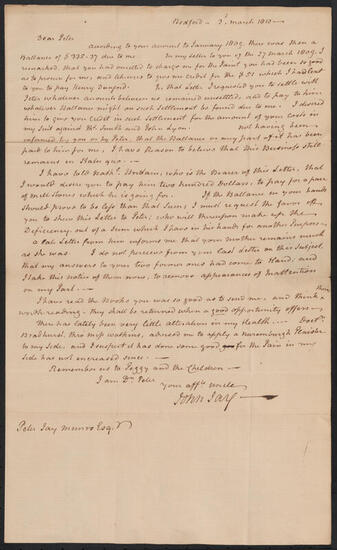 Bedford - 3. March 1810 -
Dear Peter
According to your account to January 1809, there was then a
Ballance of $335-37 due to me. In my letter to you of the 27 March 1809. I
remarked, that you had omitted to charge me for the Paint you had been so good
as to procure for me, and likewise to give me credit for the $51 which I had sent
to you to pay Henry Danford. In that Letter I requested you to settle with
Peter whatever accounts between us remained unsettled, and to pay to him
whatever Ballance might on such Settlement be found due to me. I desired
him to give you credit in such Settlement for the amount of your costs on
my Suit against Mr. Smith and John Lyon. not having been
informed by you or by Peter, that the Ballance or any part of it has been
paid to him for me, I have Reason to believe that this Business still
remains in Statu quo. -
I have told Nathl. Jordain, who is the Bearer of this Letter, that
I would desire you to pay him two hundred Dollars, to pay for a pair
of mill Stones which he is going for. If the Ballance in your hands
should prove to be less than that Sum, I must request the favor of
you to shew this Letter to Peter; who will thereupon make up the
Deficiency, out of a Sum which I have in his hands for another Purpose -
a late Letter from him informs me that your mother remains much
as she was. I do not percieve from your last Letter on this Subject
that my answers to your two former ones had come to Hand, and
I take this notice of them now, to remove appearances of Inattention
on my Part. -
I have read the Books you was so good as to send me, and think them
worth reading. They shall be returned when a good opportunity offers -
There has lately been very little alteration in my Health. Doctr.
Bradhurst, thro miss Watkins, advised me to apply a Nuremburgh Plaister
to my Side, and I suspect it has done some good for the Pain in my
Side has not encreased since -
Remember us to Peggy and the Children -
I am Dr. Peter
Your affte. uncle
John Jay -
Peter Jay Munro Esqr.